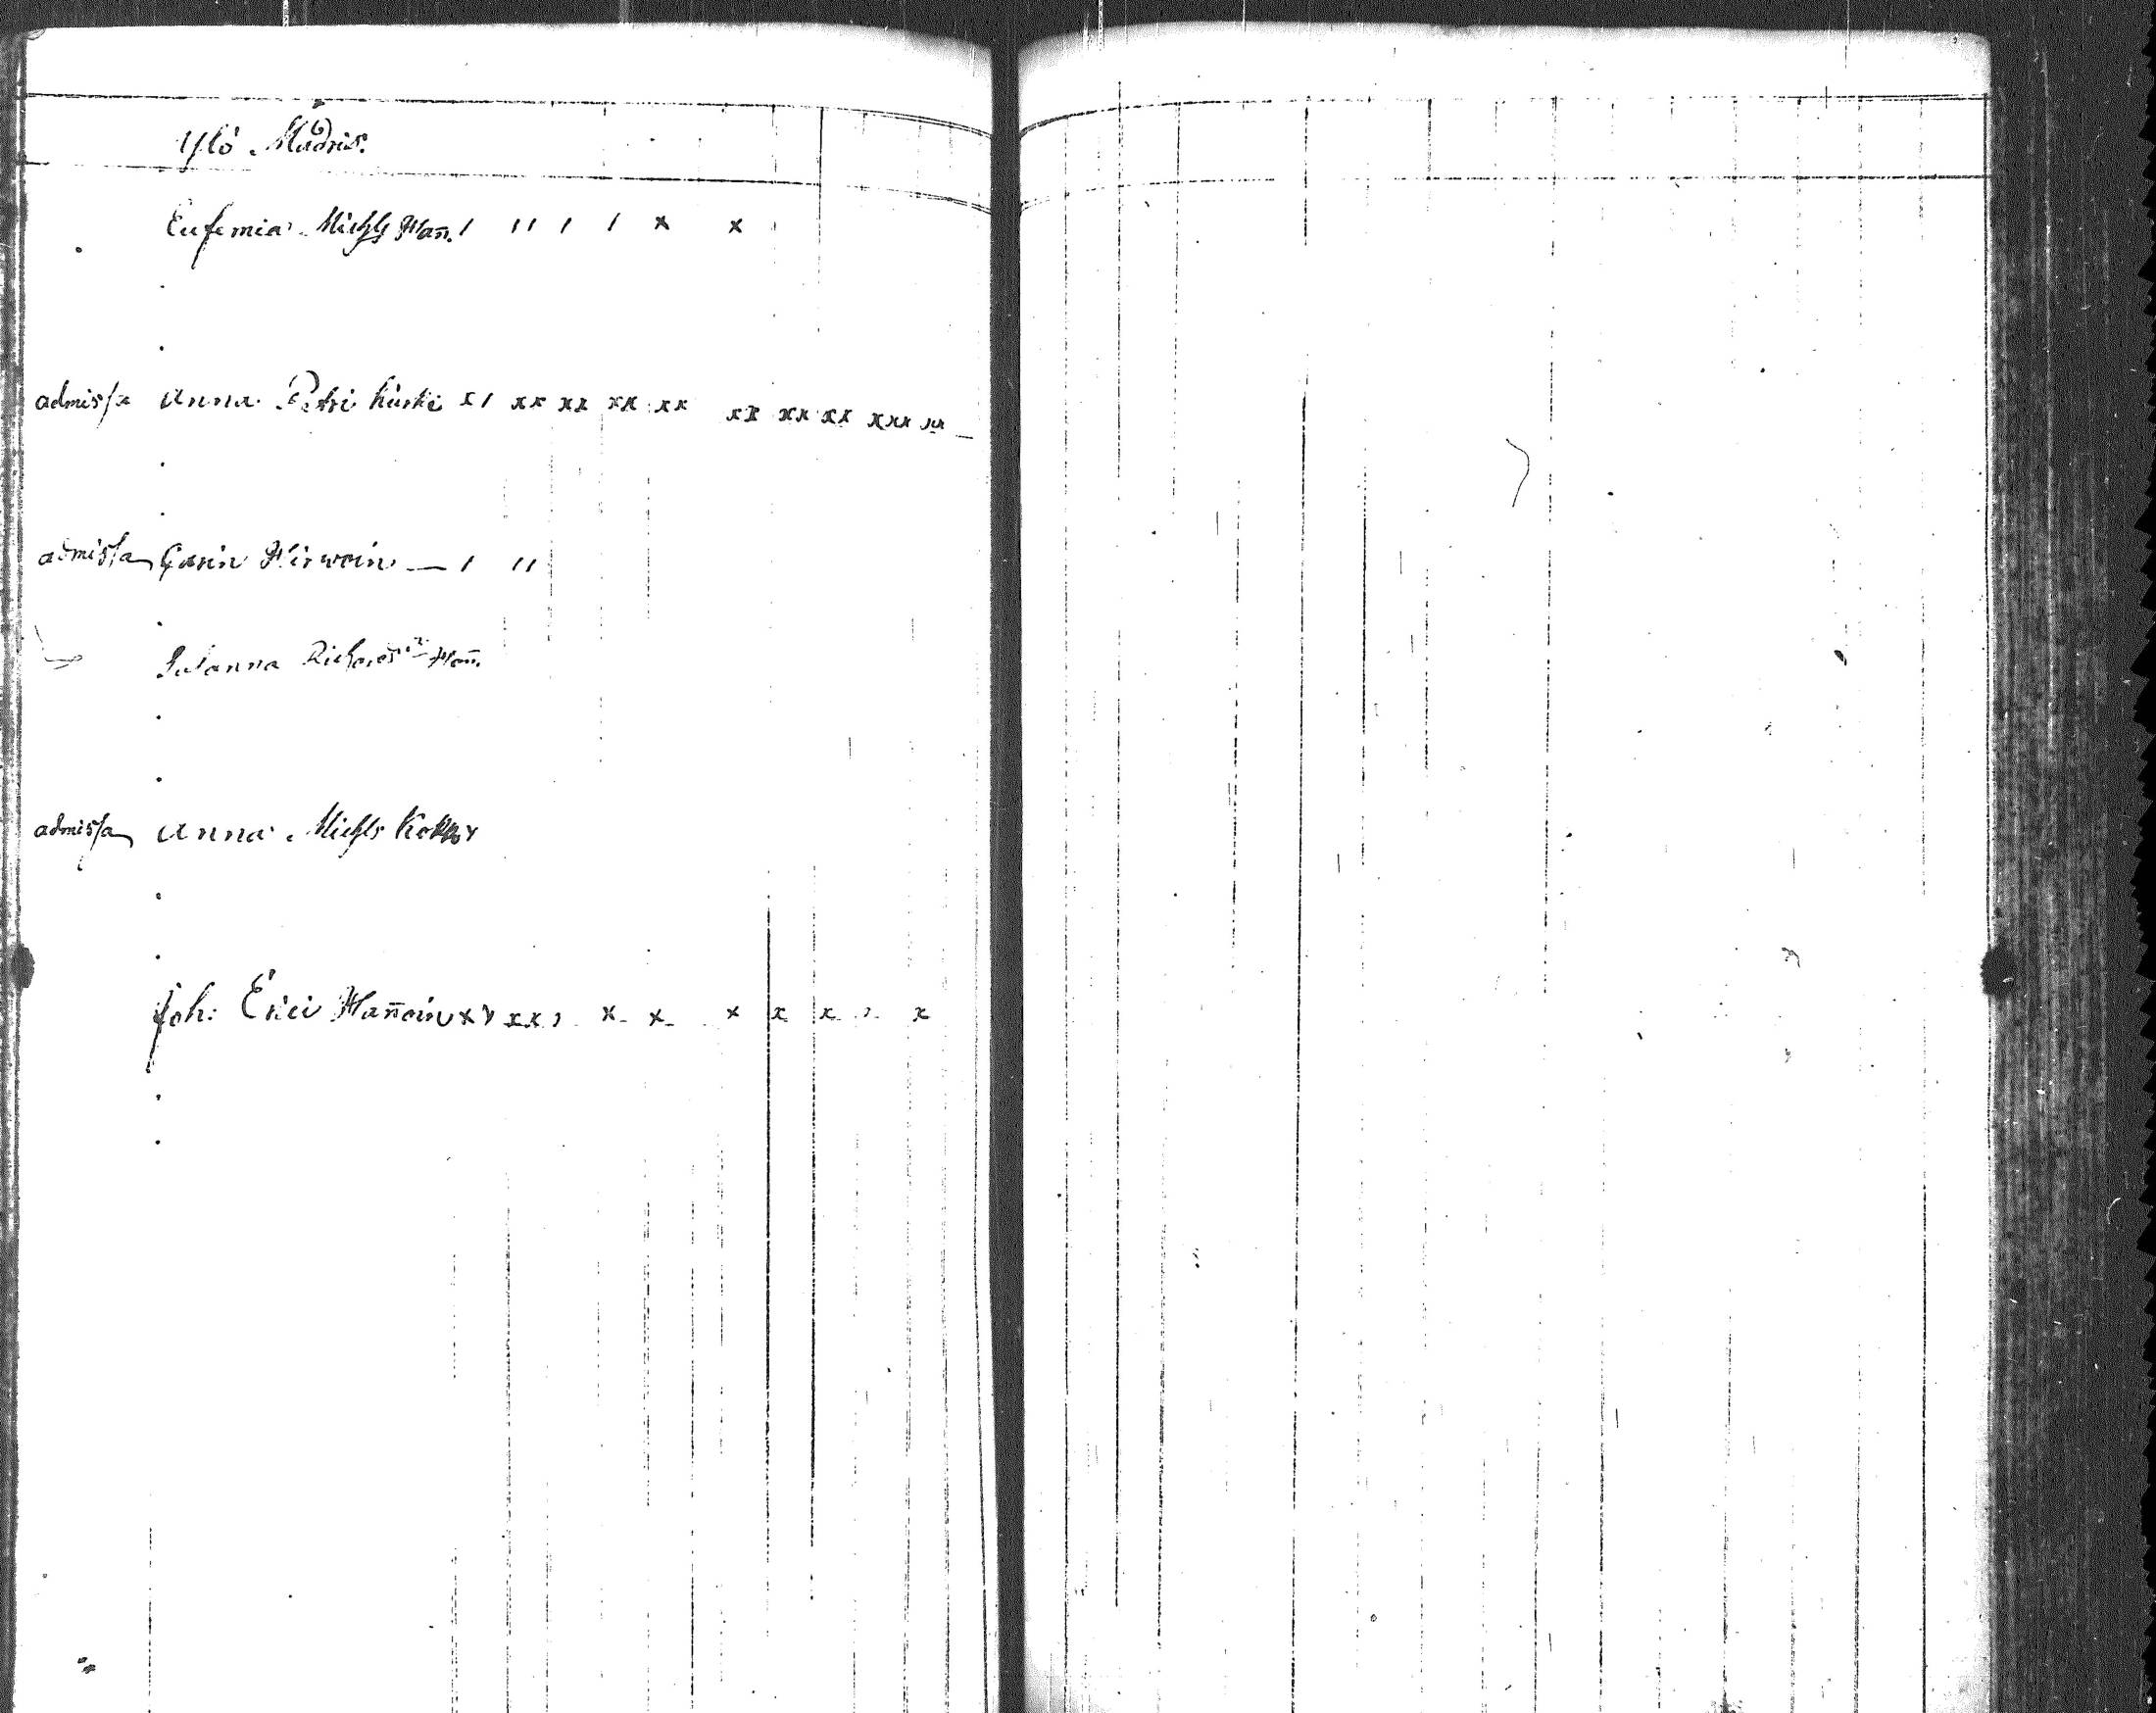 Ylö Madris.
Eufemia Michls Hañ. / // / / x x
admissa Anna Petri Kurki x/ xx xx xx xx xx xx xx xxx xx
admissa Carin Hirwoin — / //
Susanna Hañ.
admissa Anna Michls
Joh: Erici Hañoin xx xx x x x x x x